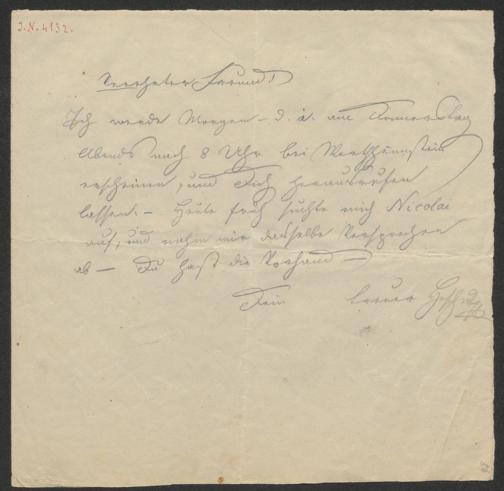 I.N. 4132.
Verehrter Freund!
Ich werde Morgen – d. i. am Donnerstag
Abends nach 8 Uhr bei
erscheinen, und Dich herausrufen
lassen. – Heute früh suchte mich Nicolai
auf, und nahm mir dasselbe Versprechen
ab – Du hast die Vorhand –
Dein